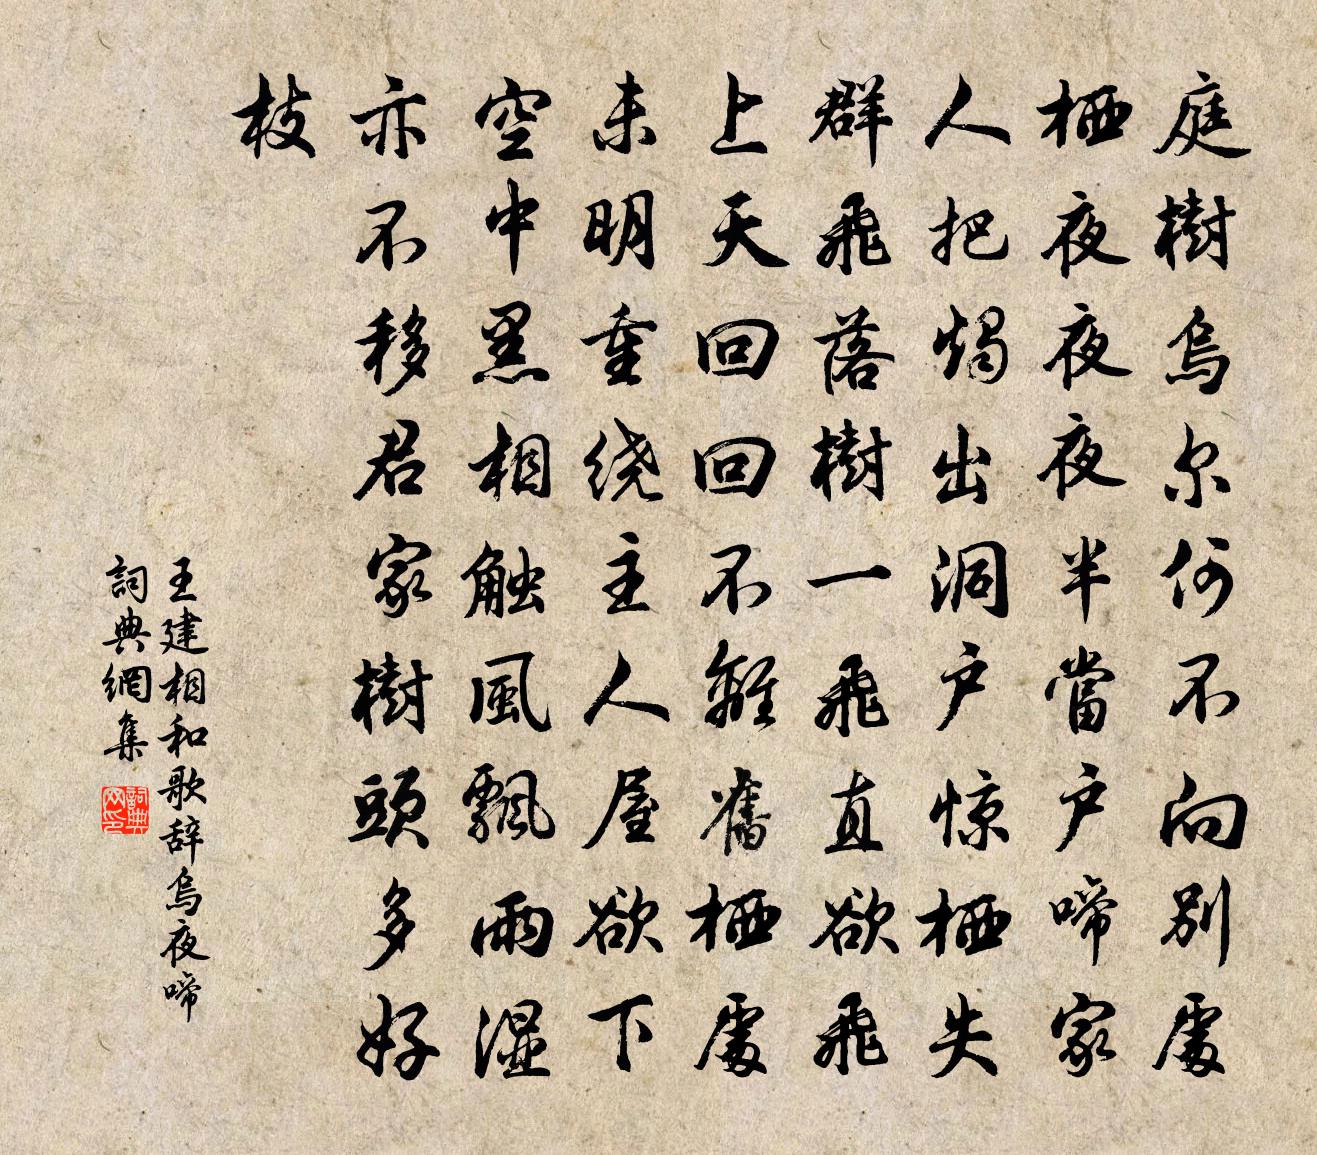 庭樹烏尔何不向别處
栖夜夜夜半當户啼家
人把燭出洞户惊栖失
群飛落樹一飛直欲飛
上天回回不離舊栖處
未明重绕主人屋欲下
空中黑相触風飄雨湿
亦不移君家樹頭多好
枝
王建相和歌辞烏夜啼
詞典網集
詞典
网印